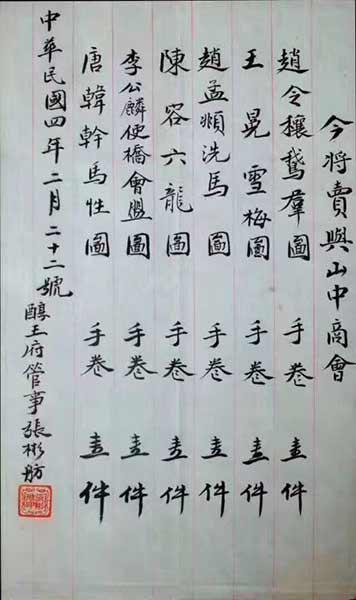 今將賣與山中商會
趙令穰鵝羣圖 手卷 壹件
王冕雪梅圖 手卷 壹件
趙孟頫洗馬圖 手卷 壹件
陳容六龍圖 手卷 壹件
李公麟便橋會盟圖 手卷 壹件
唐韓幹馬性圖 手卷 壹件
中華民國四年二月二十二號
醇王府管事張彬舫